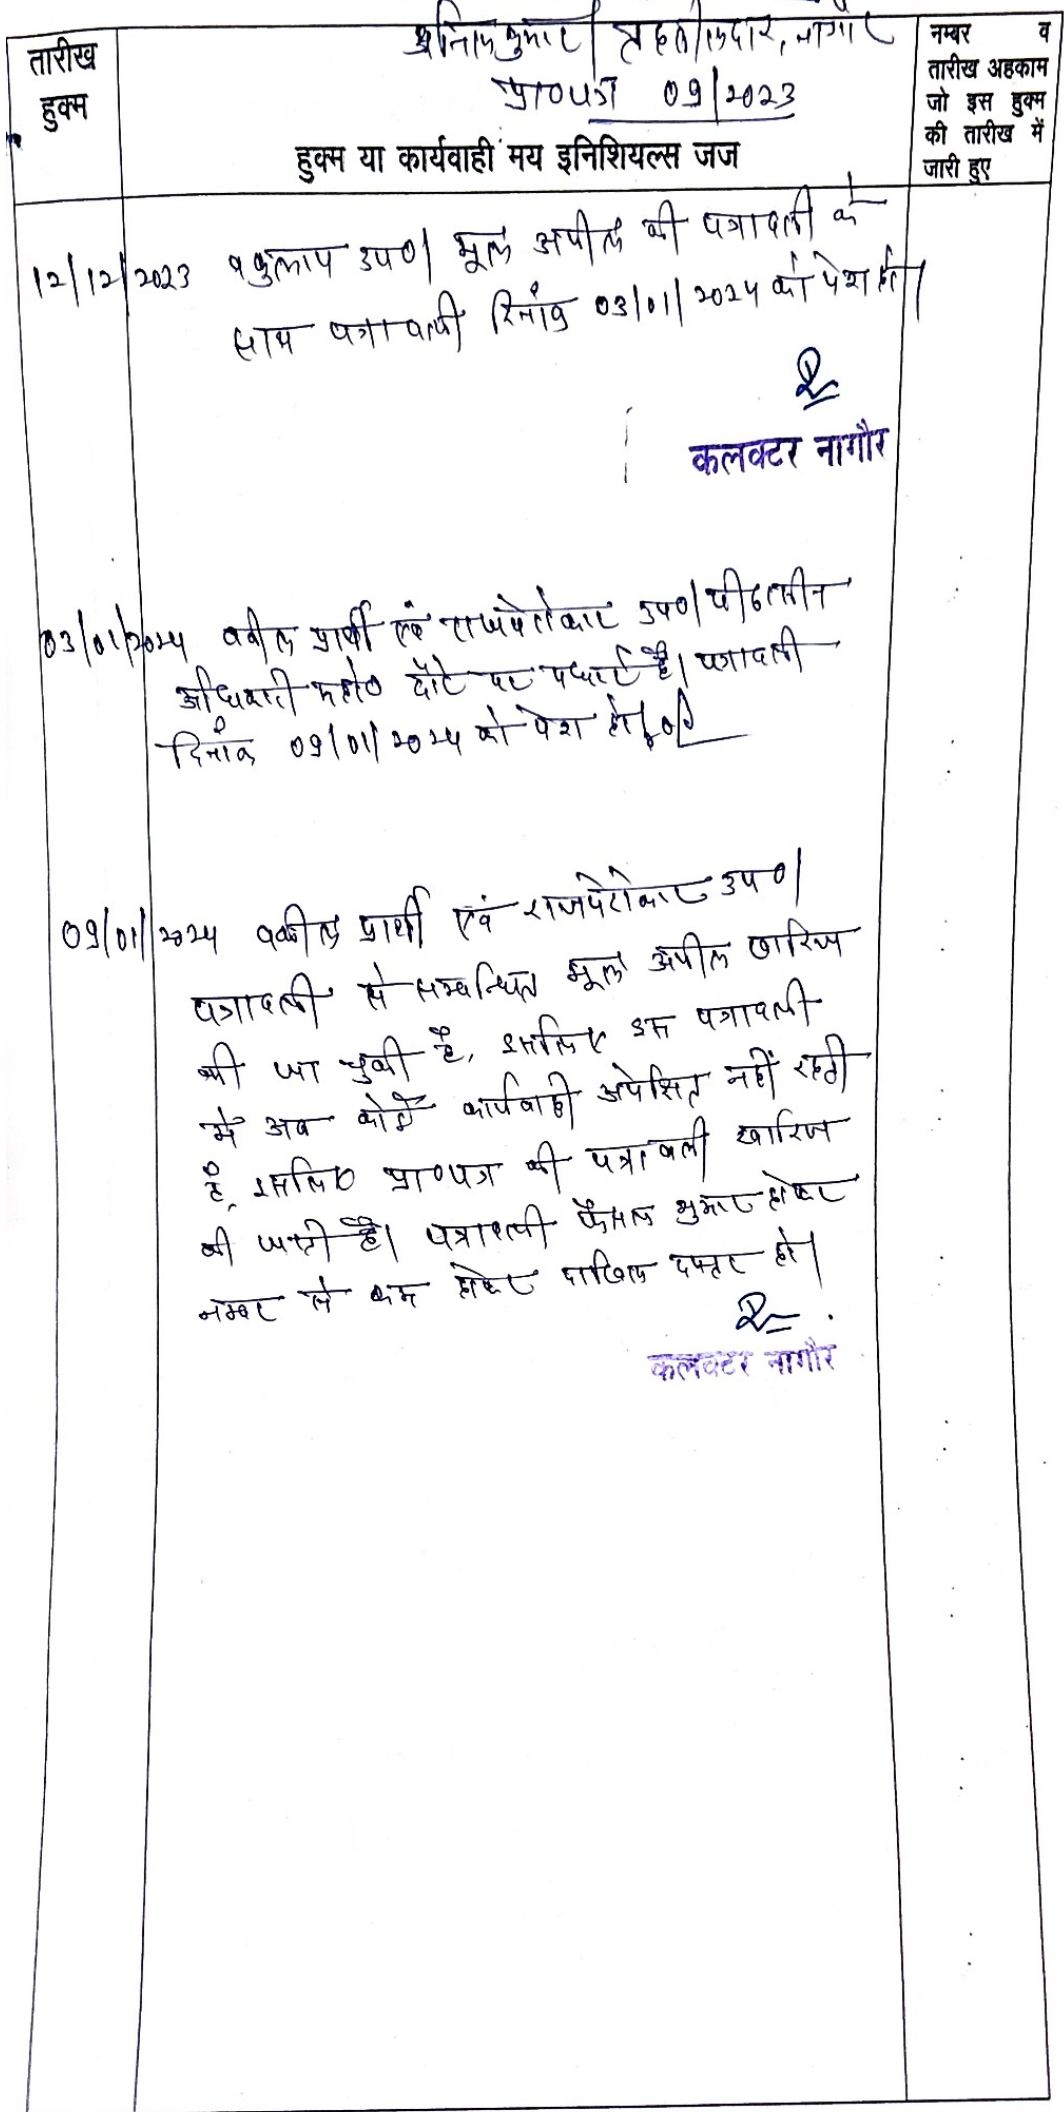 अनिल कुमार / तहसीलदार, नागौर
प्रा०पत्र 09/2023
तारीख
हुक्म
हुक्म या कार्यवाही मय इनिशियल्स जज
नम्बर व
तारीख अहकाम
जो इस हुक्म
की तारीख में
जारी हुए
12/12/2023 वकुलाय उप०। मूल अपील की पत्रावली के
साथ पत्रावली दिनांक 03/01/2024 को पेश हो।
कलक्टर नागौर
03/01/2024 वकील प्रार्थी एवं राजपेरोकार उप०। पीठासीन
अधिकारी महो० दौरे पर पधारे है। पत्रावली
दिनांक 09/01/2024 को पेश हो।
09/01/2024 वकील प्रार्थी एवं राजपेरोकार उप०।
पत्रावली से सम्बन्धित मूल अपील खारिज
की जा चुकी है, इसलिए इस पत्रावली
में अब कोई कार्यवाही अपेक्षित नहीं रहती
है, इसलिए प्रा०पत्र की पत्रावली खारिज
की जाती है। पत्रावली फैसल शुमार होकर
नम्बर से कम होकर दाखिल दफ्तर हो।
कलक्टर नागौर